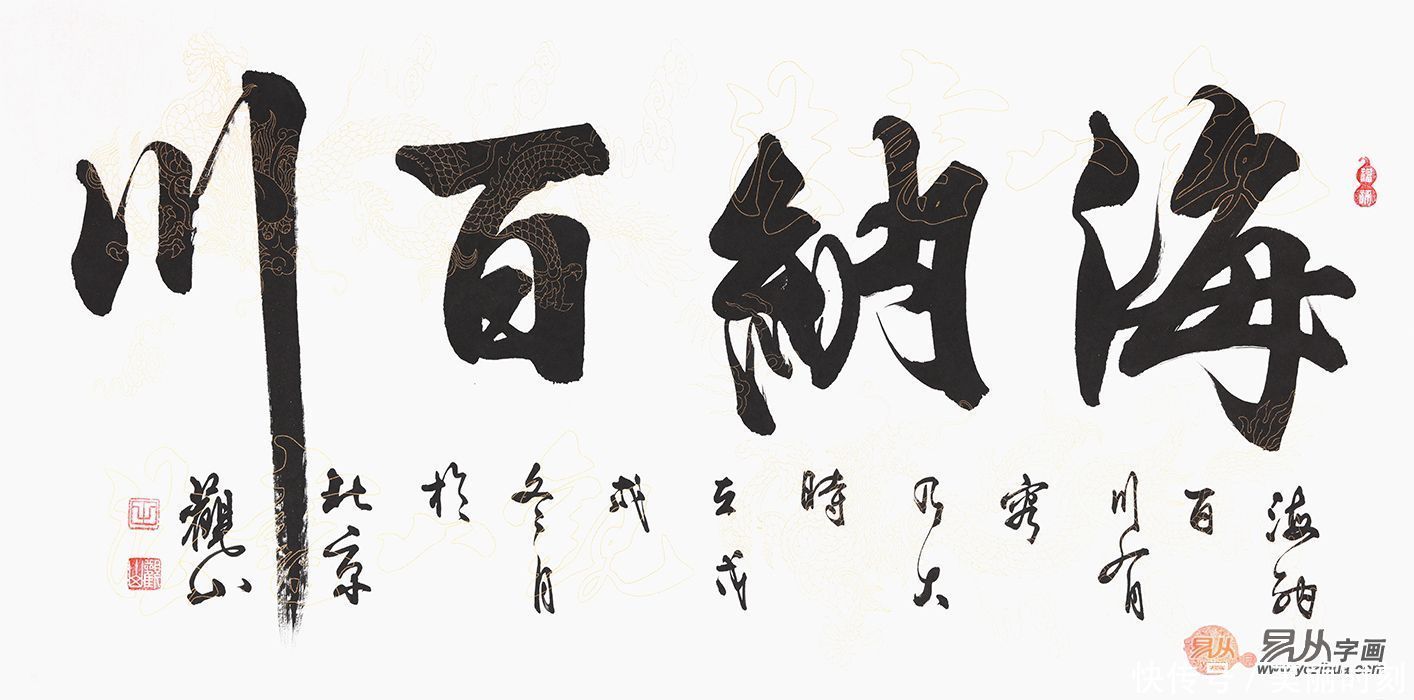 海納百川
海納
百
川有
容
乃大
時
在戊
戌
冬月
於
北京
觀山
觀山
易从字画
www.yczihua.com
快传号 / 美丽时刻